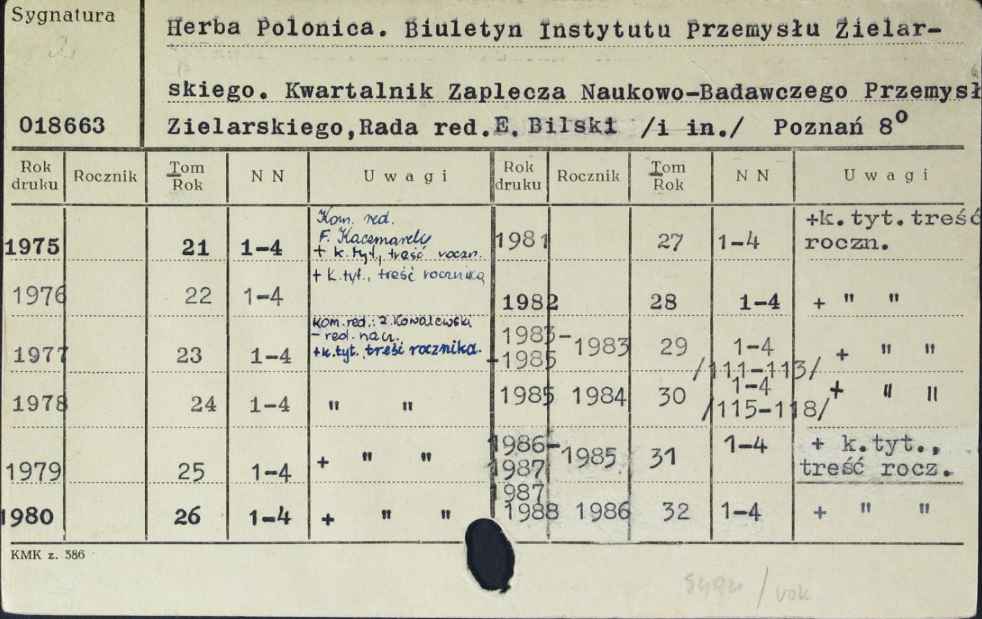 Sygnatura
Herba Polonica. Biuletyn Instytutu Przemysłu Zielar-
skiego. Kwartalnik Zaplecza Naukowo-Badawczego Przemysł
018663
Zielarskiego, Rada red. E. Bilski /i in./ Poznań 8°
Rok druku Rocznik Tom Rok N N Uwagi Rok druku Rocznik Tom Rok N N Uwagi
1975 21 1-4 Kom. red.
F.
+ k. tyt., treść roczn.
1976 22 1-4 + k. tyt., treść rocznika
1977 23 1-4 Kom. red.: Z. Kowalewski
- red. nacz.
+k. tyt. treść rocznika.
1978 24 1-4 " "
1979 25 1-4 + " "
1980 26 1-4 + " "
1981 27 1-4 +k. tyt. treść
roczn.
1982 28 1-4 + " "
1983-
1985 1983 29 1-4
/111-113/ + " "
1985 1984 30 1-4
/115-118/ + " "
1986-
1987 1985 31 1-4 + k. tyt.,
treść rocz.
1987
1988 1986 32 1-4 + " "
KMK z. 386